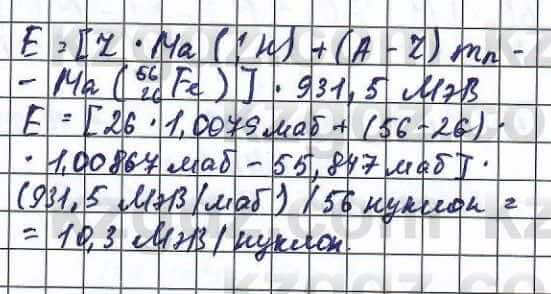 E = [Z · Ma (¹₁H) + (A - Z) mn -
- Ma (⁵⁶₂₆Fe)] · 931,5 МэВ
E = [26 · 1,0079 маб + (56 - 26) ·
· 1,00867 маб - 55,847 маб] ·
(931,5 МэВ/маб) / 56 нуклон =
= 10,3 МэВ/нуклон.